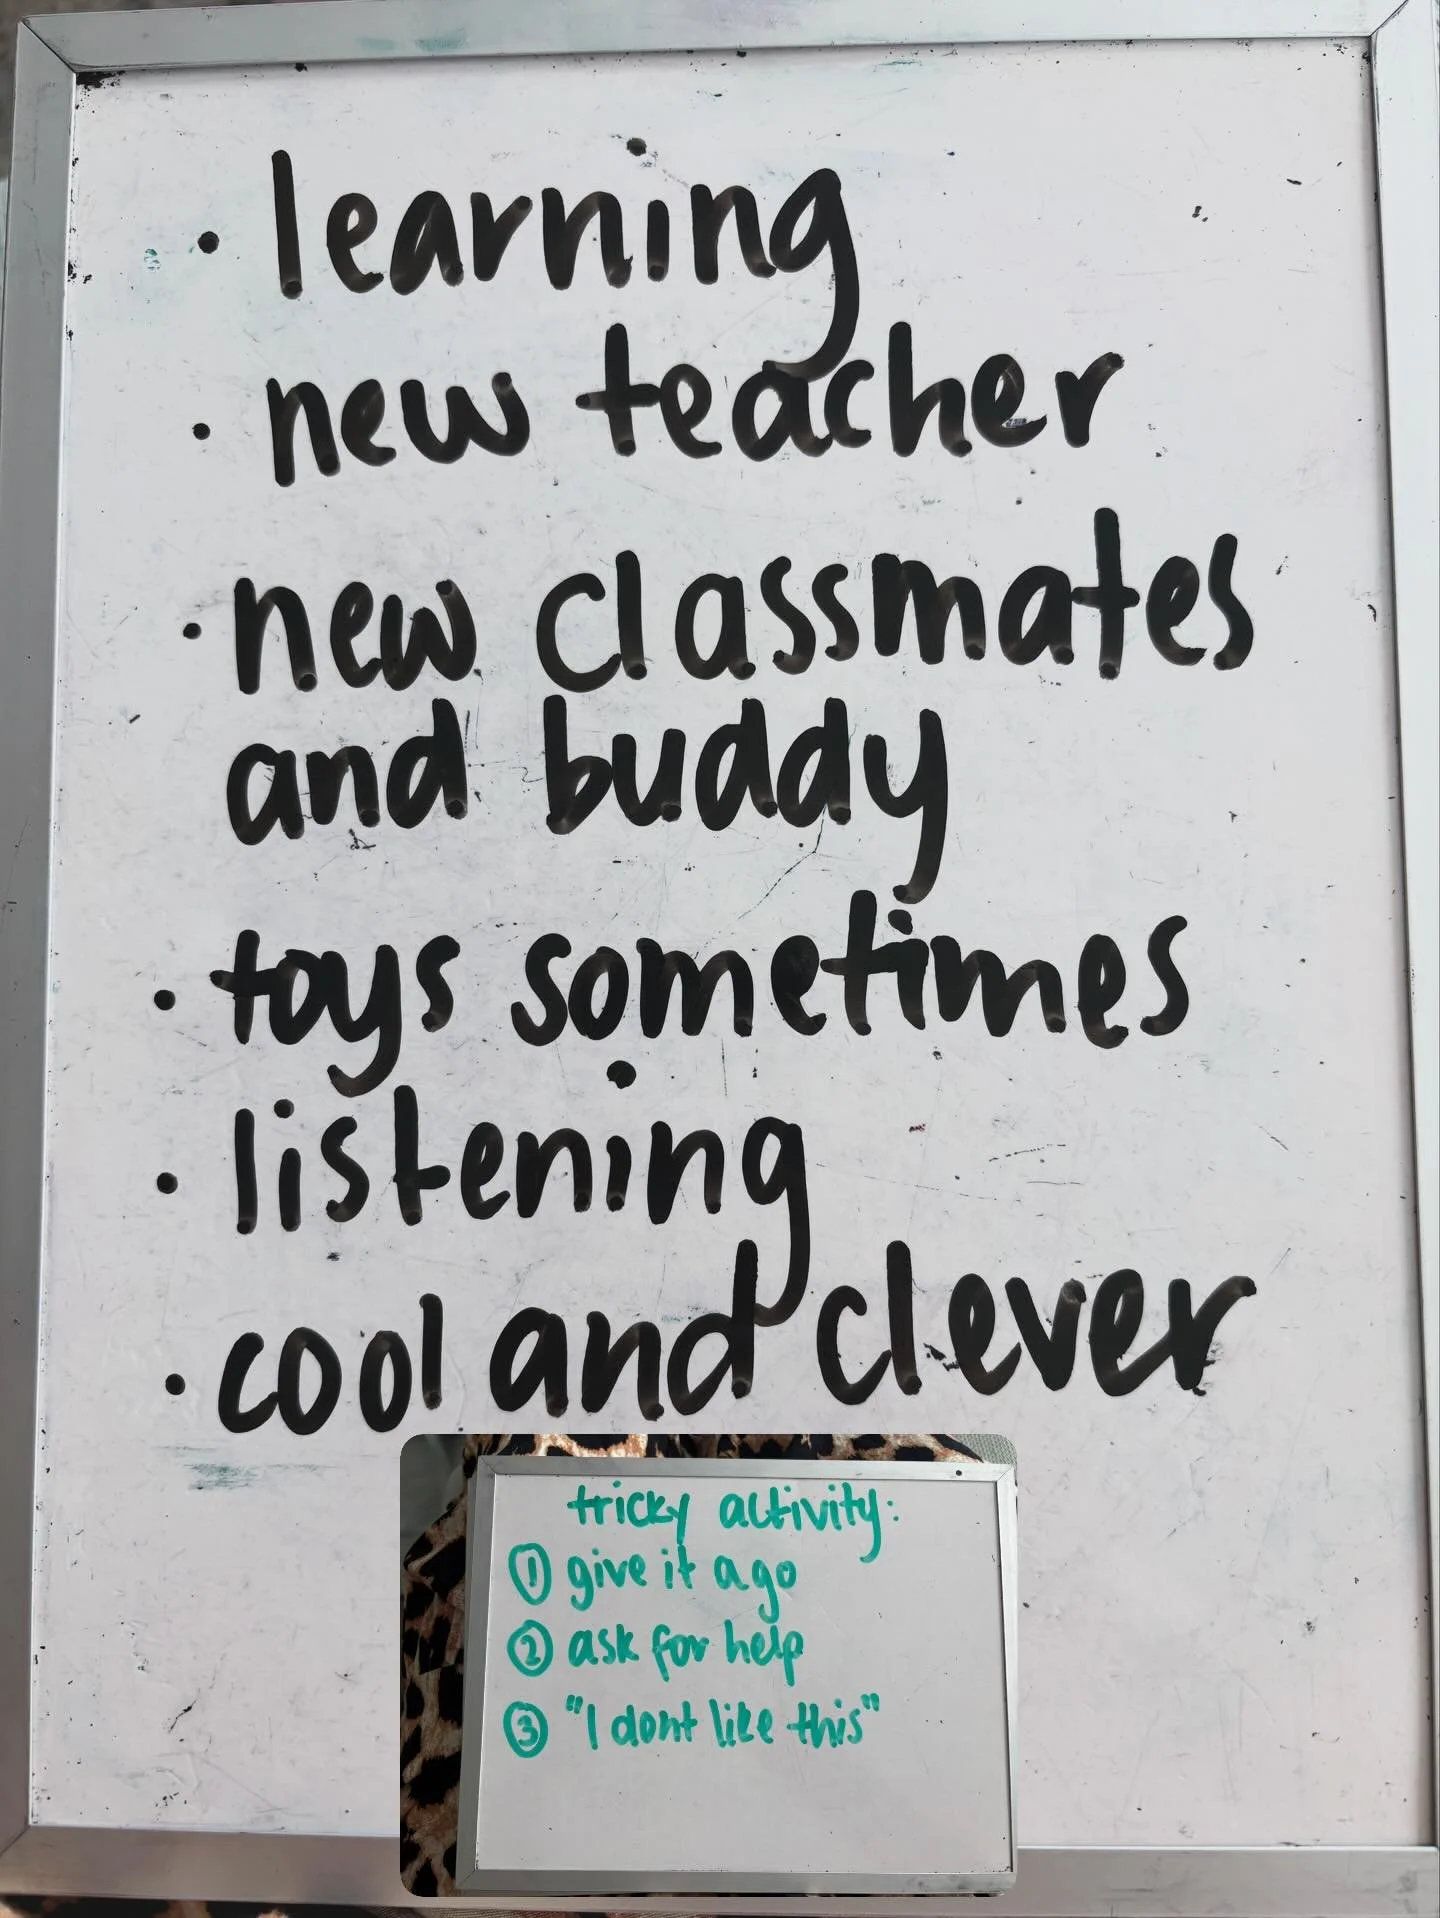 • learning
• new teacher
• new classmates
and buddy
• toys sometimes
• listening
• cool and clever
tricky activity:
① give it a go
② ask for help
③ "I dont like this"